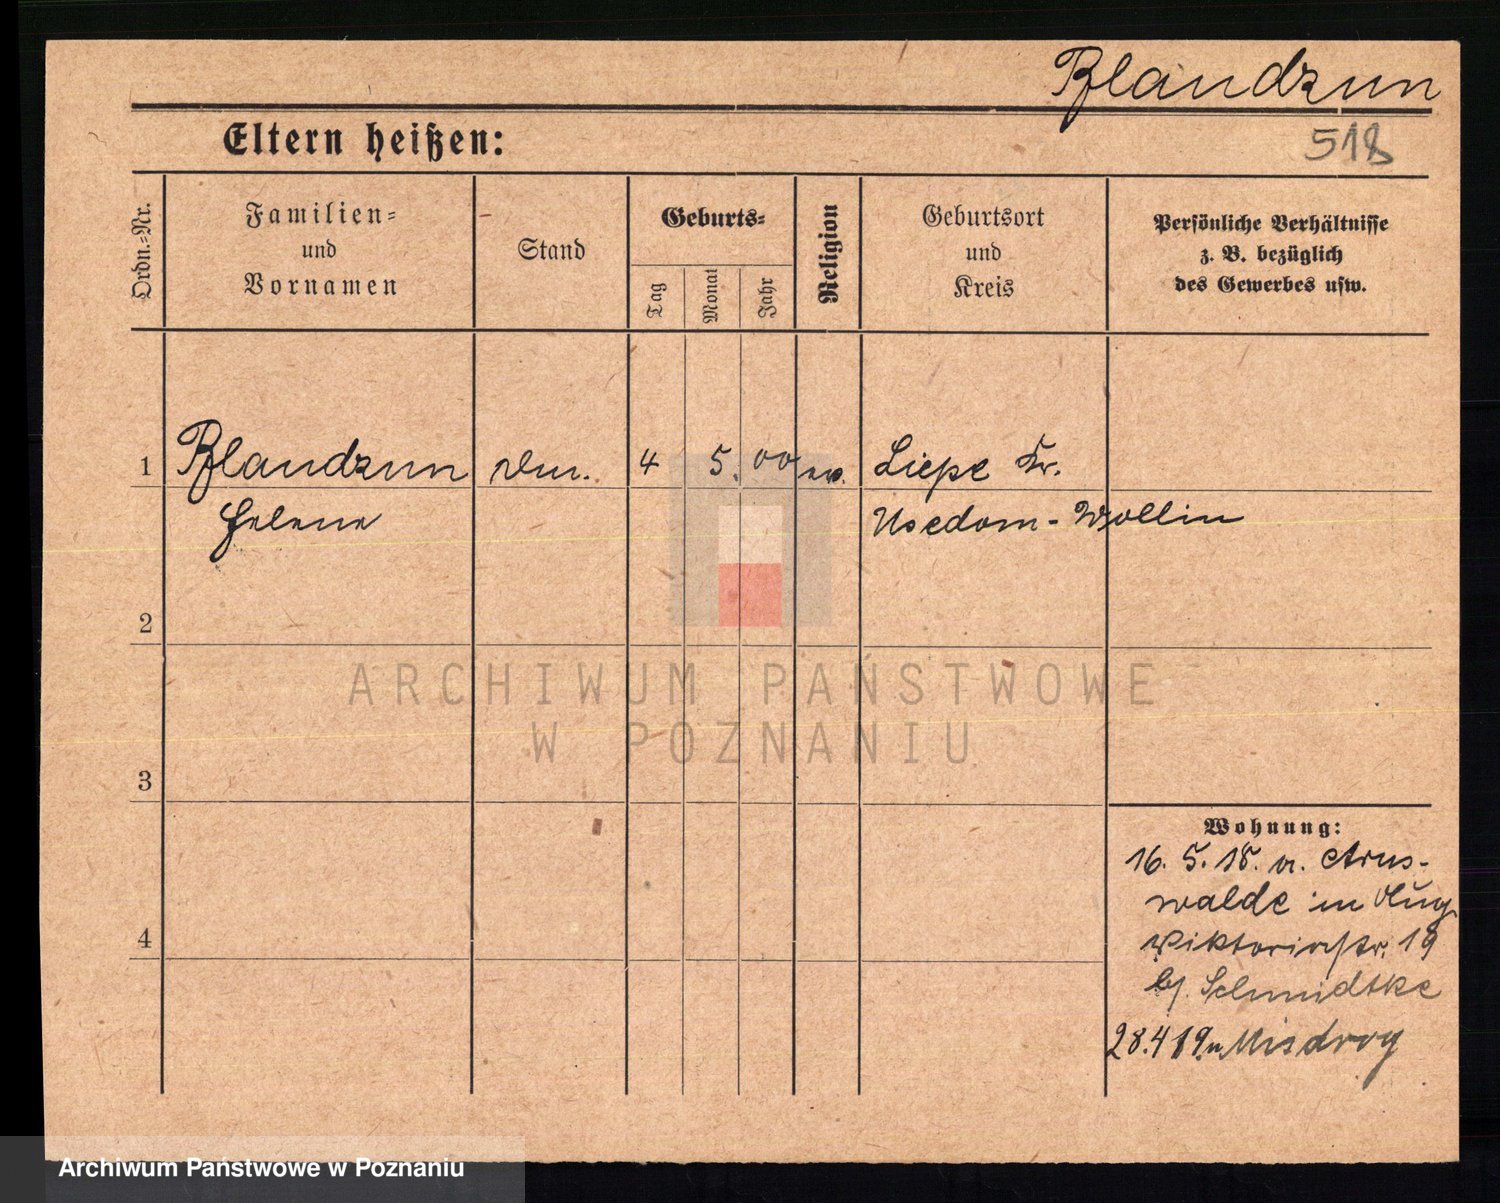 Blandzun
518
Eltern heißen:
Ordn.-Nr.
Familien-
und
Vornamen
Stand
Geburts-
Tag
Monat
Jahr
Religion
Geburtsort
und
Kreis
Persönliche Verhältnisse
z. B. bezüglich
des Gewerbes usw.
1 Blandzun 4 5. 00 ev. Liepe Kr.
Helene Usedom-Wollin
2
3
4
Wohnung:
16. 5. 18. a. Arns-
walde in
Viktoriastr. 19
b/. Schmidtke
28.4 19. n. Misdroy
ARCHIWUM PAŃSTWOWE
W POZNANIU
Archiwum Państwowe w Poznaniu